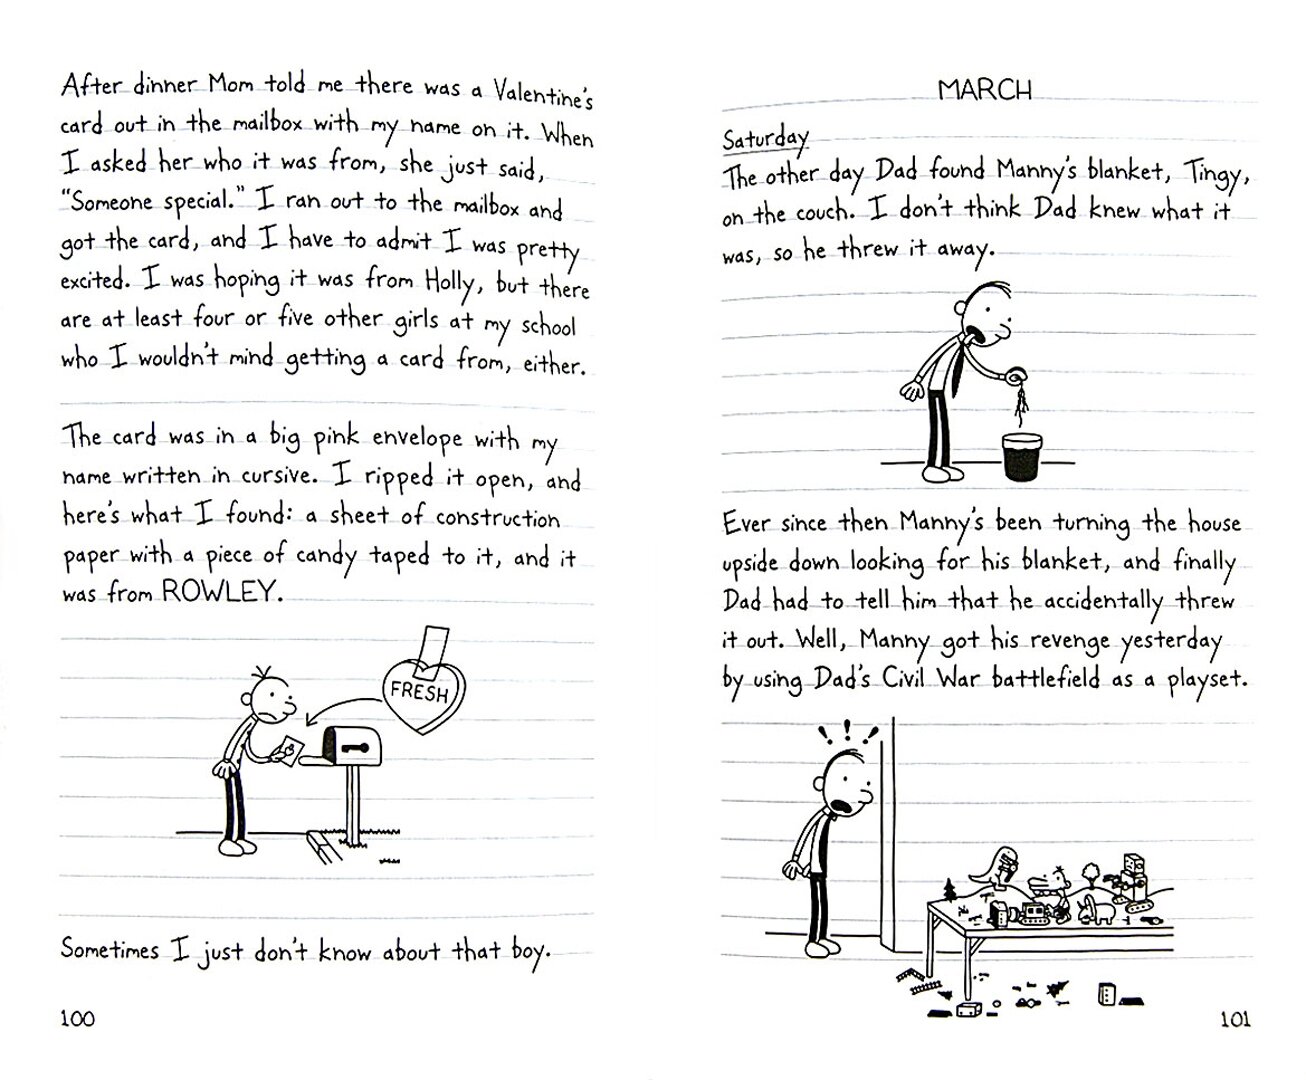 After dinner Mom told me there was a Valentine's
card out in the mailbox with my name on it. When
I asked her who it was from, she just said,
"Someone special." I ran out to the mailbox and
got the card, and I have to admit I was pretty
excited. I was hoping it was from Holly, but there
are at least four or five other girls at my school
who I wouldn't mind getting a card from, either.
The card was in a big pink envelope with my
name written in cursive. I ripped it open, and
here's what I found: a sheet of construction
paper with a piece of candy taped to it, and it
was from ROWLEY.
FRESH
Sometimes I just don't know about that boy.
100
MARCH
Saturday
The other day Dad found Manny's blanket, Tingy,
on the couch. I don't think Dad knew what it
was, so he threw it away.
Ever since then Manny's been turning the house
upside down looking for his blanket, and finally
Dad had to tell him that he accidentally threw
it out. Well, Manny got his revenge yesterday
by using Dad's Civil War battlefield as a playset.
! ! !
101